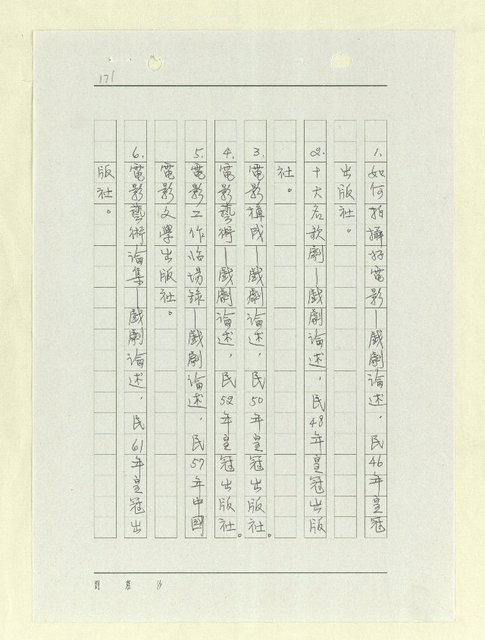 171
1.如何拍攝好電影—戲劇論述，民46年皇冠
出版社。
2.十大名歌劇—戲劇論述，民48年皇冠出版
社。
3.電影構成—戲劇論述，民50年皇冠出版社。
4.電影藝術—戲劇論述，民52年皇冠出版社。
5.電影工作临場錄—戲劇論述，民57年中國
電影文學出版社。
6.電影藝術論集—戲劇論述，民61年皇冠出
版社。
劉慕沙